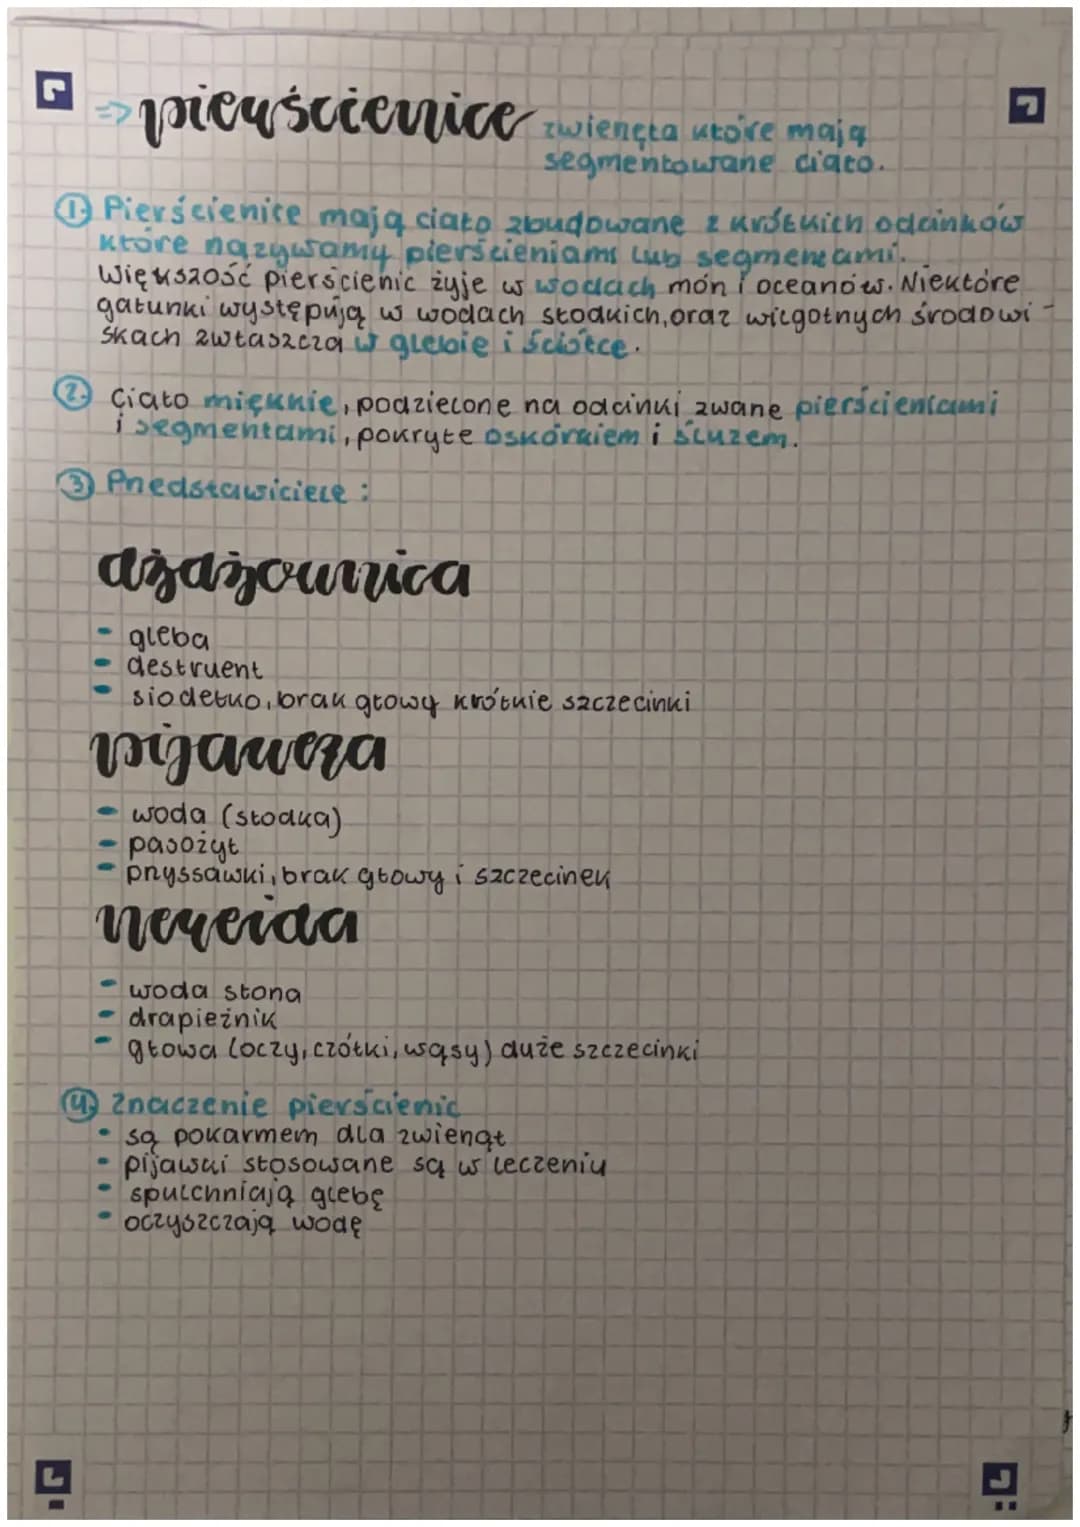 => pierścienice zwierzęta które mają
segmentowane ciało.
1. Pierścienice mają ciało zbudowane z krótkich odcinków
które nazywamy pierścieniami lub segmentami.
Większość pierścienic żyje w wodach mórz i oceanów. Niektóre
gatunki występują w wodach słodkich, oraz wilgotnych środowi-
skach zwłaszcza w glebie i ściółce.
2. Ciało miękkie, podzielone na odcinki zwane pierścieniami
i segmentami, pokryte oskórkiem i śluzem.
3 Przedstawiciele :
dżdżownica
- gleba
- destruent
- siodełko, brak głowy krótkie szczecinki
pijawka
- woda (słodka)
- pasożyt
- przyssawki, brak głowy i szczecinek
nereida
- woda słona
- drapieżnik
- głowa (oczy, czółki, wąsy) duże szczecinki
4. Znaczenie pierścienic
- są pokarmem dla zwierząt
- pijawki stosowane są w leczeniu
- spulchniają glebę
- oczyszczają wodę